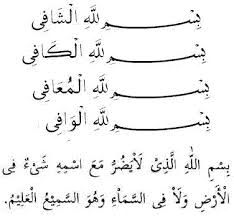 بِسْمِ للَّهِ الْشَافِى
بِسْمِ للَّهِ الْكَافِى
بِسْمِ للَّهِ الْمُعَافِى
بِسْمِ للَّهِ الْوَافِى
بِسْمِ اللّٰهِ الَّذِىْ لَايَضُرُّ مَعَ اسْمِهِ شَىْءٌ فِى
الْأَرْضِ وَلَا فِى السَّمَاءِ وَهُوَ السَّمِيْعُ الْعَلِيْمُ.